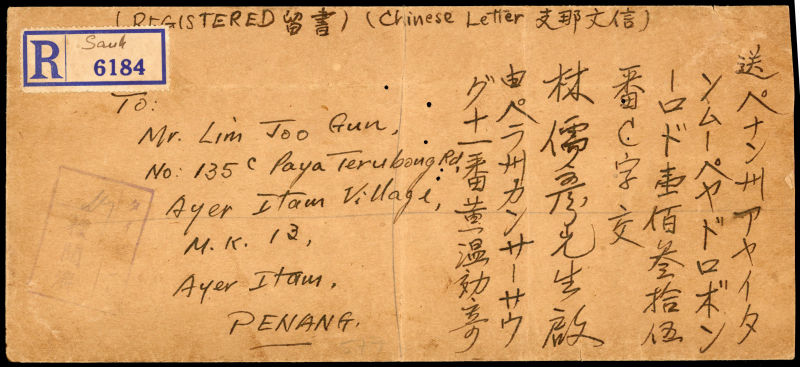 (REGISTERED 留書) (Chinese Letter 支那文信)
R
Sauk
6184
To:
Mr. Lim Joo Gun,
No: 135C Paya Terubong Rd,
Ayer Itam Village,
M.K. 13,
Ayer Itam,
PENANG.
送ペナン州アヤイタ
ンムーペヤドロボン
ーロド壹佰叁拾伍
番C字交
林儒彥先生啟
由ペラ州カンサーサウ
グ十一番黄温効寄